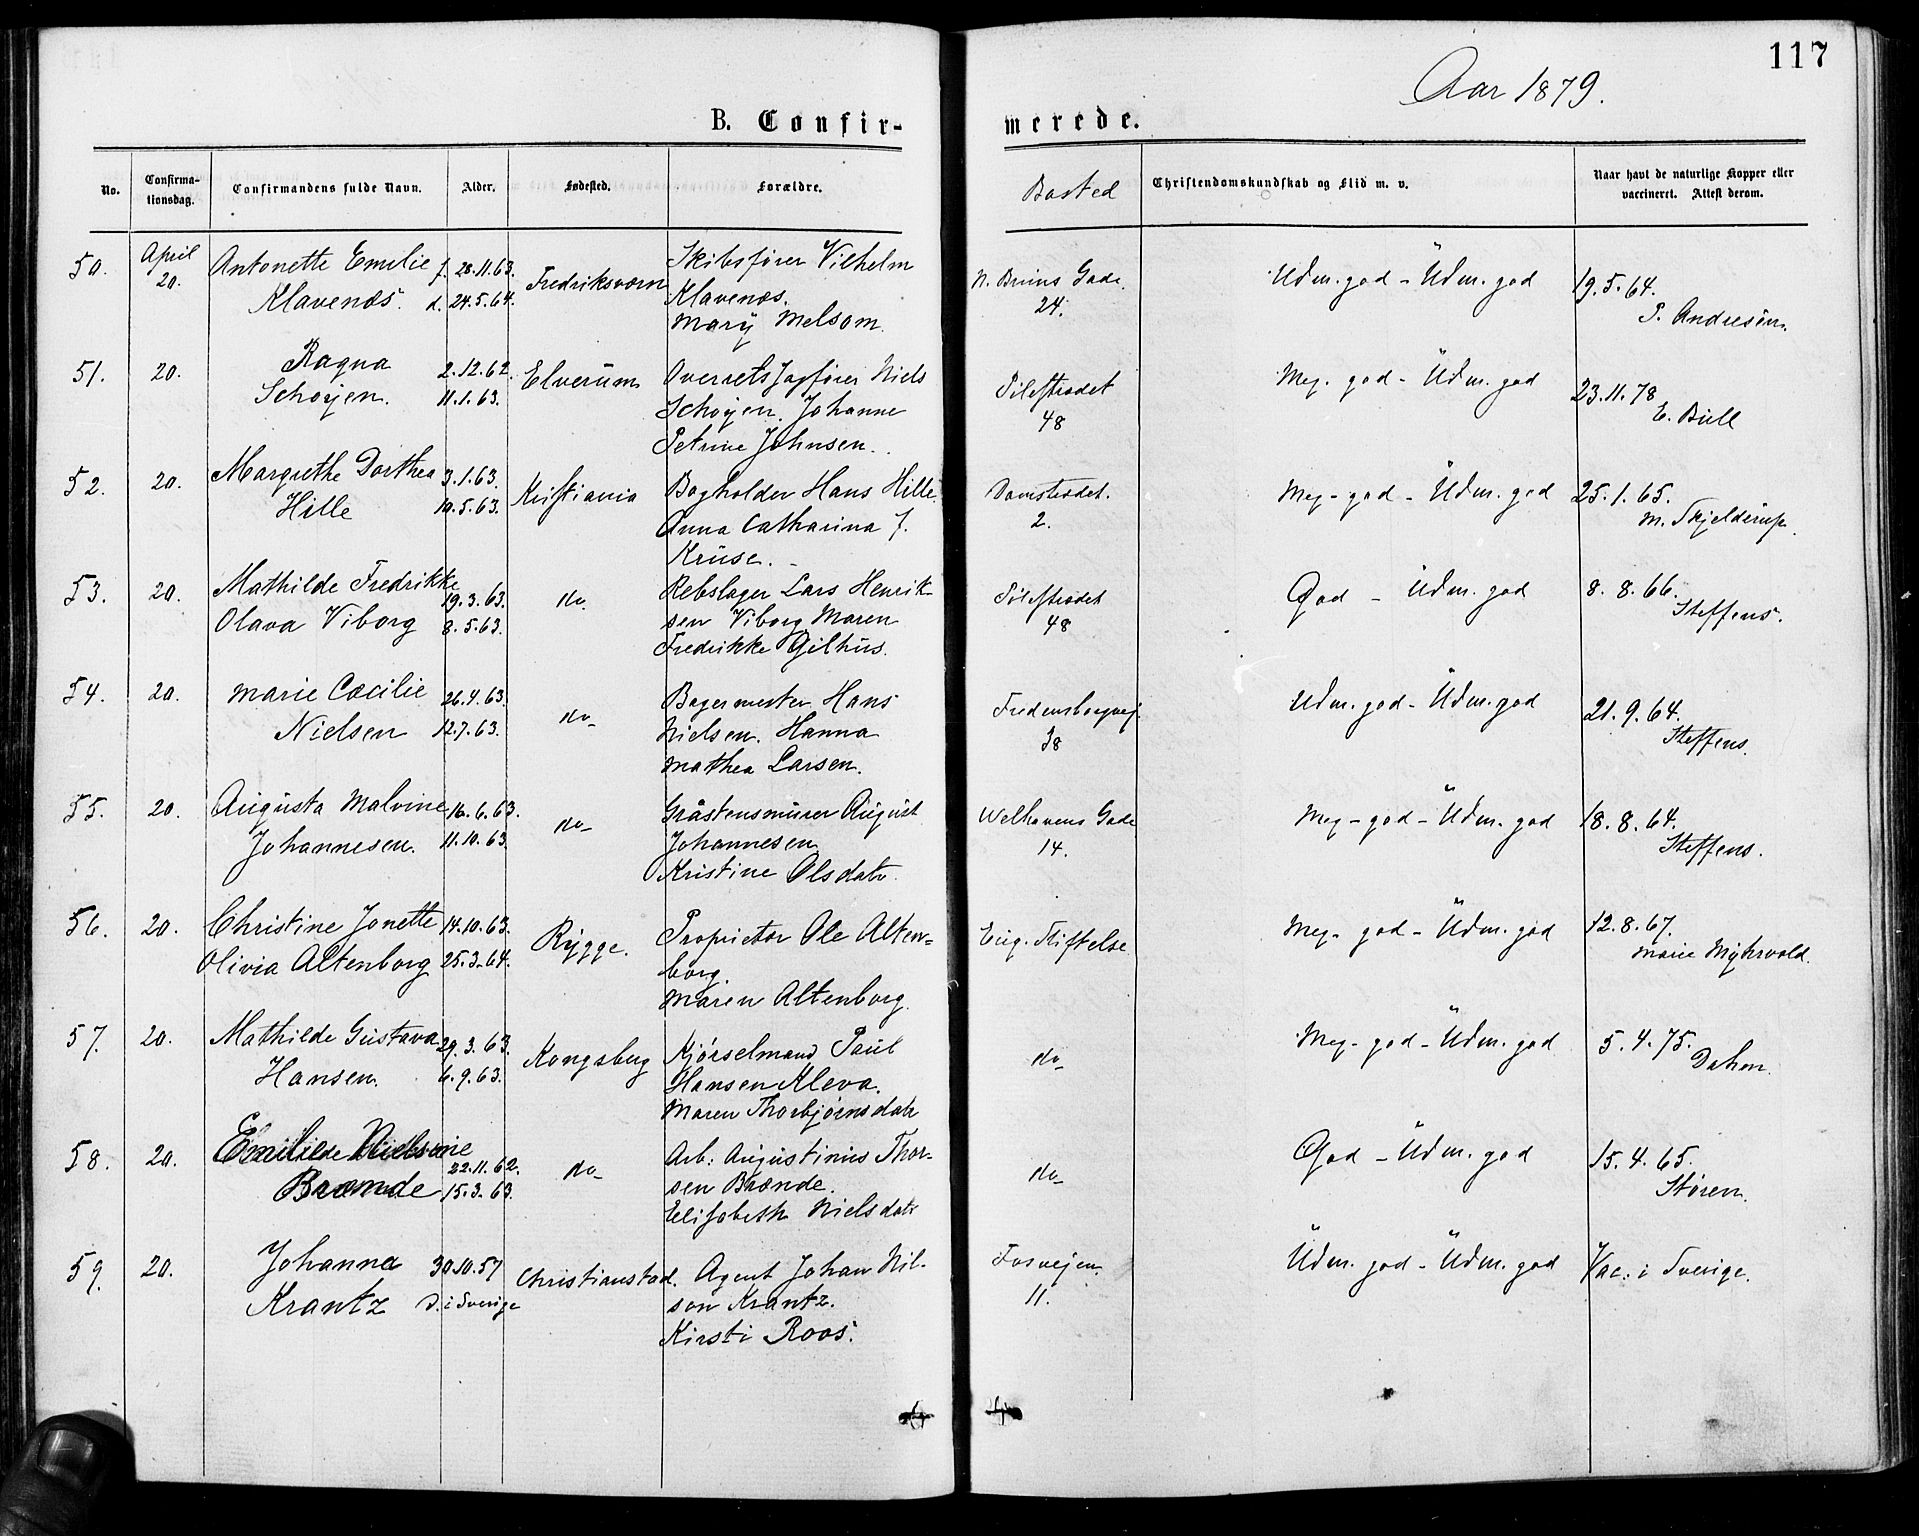 117
Aar 1879.
B. Confir-
merede.
No.
Confirma-
tionsdag.
Confirmandens fulde Navn.
Alder.
Fødested.
Forældre.
Bosted
Christendomskundskab og Flid m. v.
Naar havt de naturlige Kopper eller
vaccineret. Attest derom.
50. April 20. Antonette Emilie f. 28.11.63. Fredriksværn Skibsfører Vilhelm N. Bruns Gade. Udm. god - Udm. god 19.5.64.
Klavenæs. d. 24.5.64. Klavenæs. 24. P. Andresen.
Mary Melsom.
51. 20. Ragna 2.12.62. Elverum Overretssagfører Niels Pilestrædet Meg. god - Udm. god 23.11.78
Schøyen. 11.1.63. Schøyen. Johanne 48 E. Bull
Petrine Johnsen.
52. 20. Margrethe Dorthea 3.1.63. Kristiania Bogholder Hans Hille. Damstrædet. Meg. god - Udm. god 25.1.65.
Hille 10.5.63. Anna Catharina f. 2. M. Skjelderup.
Kruse.
53. 20. Mathilde Fredrikke 19.3.63. do. Rebslager Lars Henrik- Pilestrædet God - Udm. god 8.8.66.
Olava Viborg 8.5.63. sen Viborg. Maren 48 Steffens.
Fredrikke Gilhus.
54. 20. Marie Cæcilie 26.4.63. do Bagermester Hans Fredensborgvej. Udm. god - Udm. god 21.9.64.
Nielsen 12.7.63. Nielsen. Hanna 38 Steffens.
Mathea Larsen.
55. 20. Augusta Malvine 16.6.63. do Gråstensmurer August Welhavens Gade Meg. god - Udm. god 18.8.64.
Johannesen. 11.10.63. Johannesen. 14. Steffens.
Kristine Olsdatr.
56. 20. Christine Jonette 14.10.63. Rygge. Proprietær Ole Alten- Eug. Stiftelse Meg. god - Udm. god 12.8.67.
Olivia Altenborg 25.3.64. borg. Marie Myhrvold.
Maren Altenborg.
57. 20. Mathilde Gustava 29.3.63. Kongsberg Kjørselmand Paul do Meg. god - Udm. god 5.4.75.
Hansen. 6.9.63. Hansen Kleva. Dahm.
Maren Thorbjørnsdatr
58. 20. 22.11.62. do Arb: Augustinius Thor- do God - Udm. god 15.4.65.
Brænde 15.3.63. sen Brænde. Støren.
Elisabeth Nielsdatr
59. 20. Johanna 30.10.57 Christianstad. Agent Johan Nil- Fosvejen. Udm. god - Udm. god Vac: i Sverige.
Krantz D. i Sverige son Krantz. 11.
Kirsti Roos.